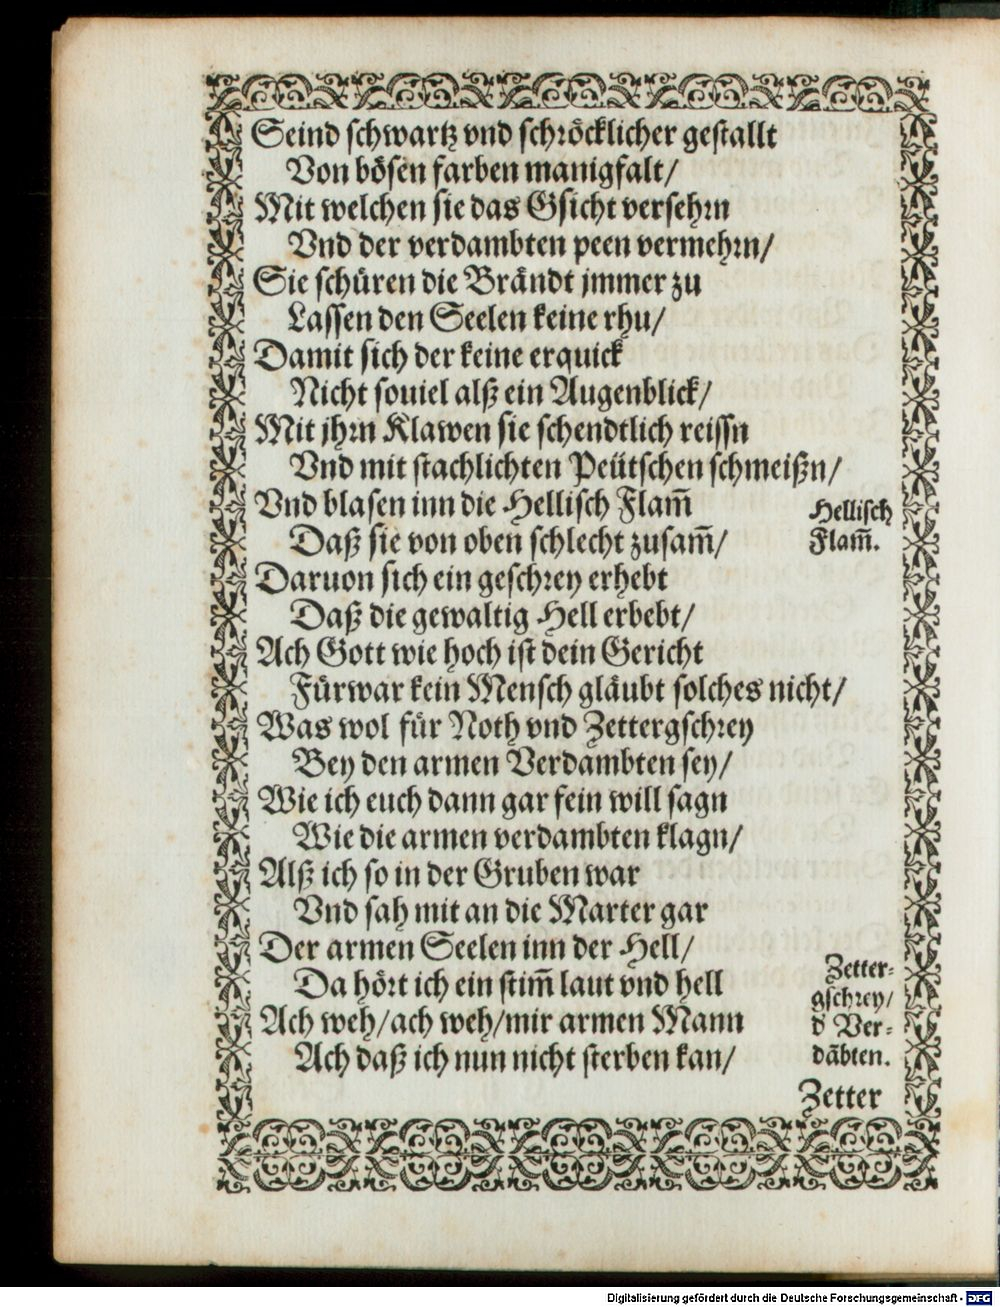 Seind schwartz vnd schröcklicher gestallt
Von bösen farben manigfalt/
Mit welchen sie das Gsicht versehrn
Vnd der verdambten peen vermehrn/
Sie schüren die Brändt jmmer zu
Lassen den Seelen keine rhu/
Damit sich der keine erquick
Nicht souiel alß ein Augenblick/
Mit jhrn Klawen sie schendtlich reissn
Vnd mit stachlichten Peütschen schmeißn/
Vnd blasen inn die Hellisch Flam̄
Daß sie von oben schlecht zusam̄/
Hellisch
Flam̄.
Daruon sich ein geschrey erhebt
Daß die gewaltig Hell erbebt/
Ach Gott wie hoch ist dein Gericht
Fürwar kein Mensch gläubt solches nicht/
Was wol für Noth vnd Zettergschrey
Bey den armen Verdambten sey/
Wie ich euch dann gar fein will sagn
Wie die armen verdambten klagn/
Alß ich so in der Gruben war
Vnd sah mit an die Marter gar
Der armen Seelen inn der Hell/
Da hört ich ein stim̄ laut vnd hell
Ach weh/ach weh/mir armen Mann
Ach daß ich nun nicht sterben kan/
Zetter-
gschrey/
d Ver-
dābten.
Zetter
Digitalisierung gefördert durch die Deutsche Forschungsgemeinschaft - DFG